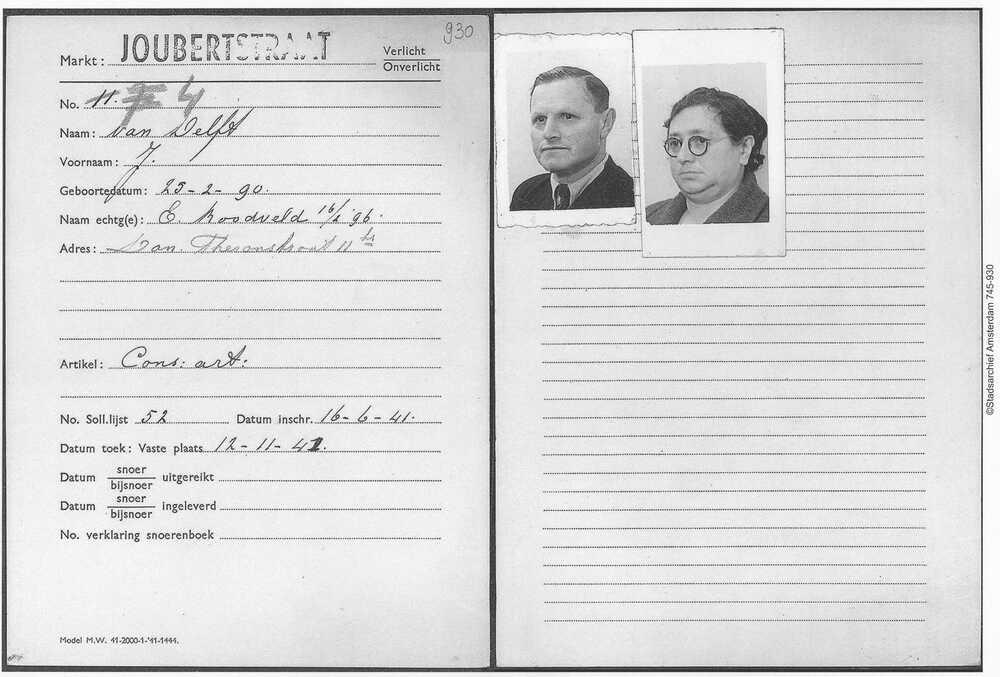 930
Markt: JOUBERTSTRAAT Verlicht
Onverlicht
No. 11. 7 4
Naam: van Delft
Voornaam: J.
Geboortedatum: 25-2-90.
Naam echtg(e): E. Roodveld 16/1 '96.
Adres: Dan. Theronstraat 11 hs
Artikel: Cons: art:
No. Soll.lijst 52 Datum inschr. 16-6-41.
Datum toek: Vaste plaats 12-11-41.
Datum snoer
bijsnoer uitgereikt
Datum snoer
bijsnoer ingeleverd
No. verklaring snoerenboek
Model M.W. 41-2000-1-'41-1444.
©Stadsarchief Amsterdam 745-930